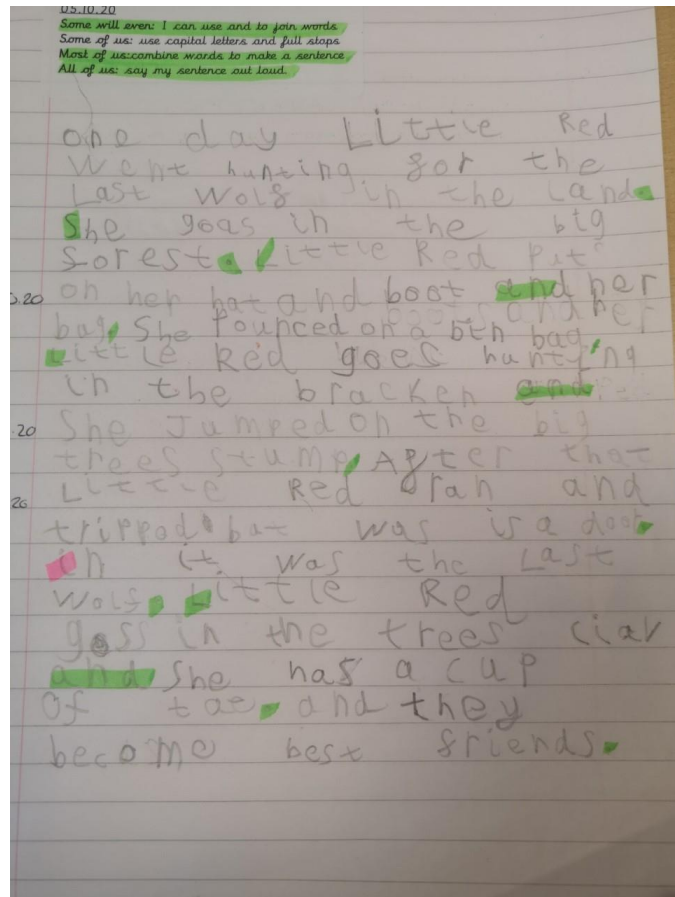 05.10.20
Some will even: I can use and to join words
Some of us: use capital letters and full stops
Most of us: combine words to make a sentence
All of us: say my sentence out loud.
one day Little Red
went hunting for the
Last wolf in the land.
She goas in the big
forest. Little Red Put
on her hat and boot and her
bag. She Pounced on a bag
Little Red goes hunting
in the bracken and
She Jumped on the big
trees stump. After that
Little Red ran and
tripped bat was is a door.
in it was the Last
wolf. Little Red
goss in the trees
and She has a cup
of tae. and they
become best friends.